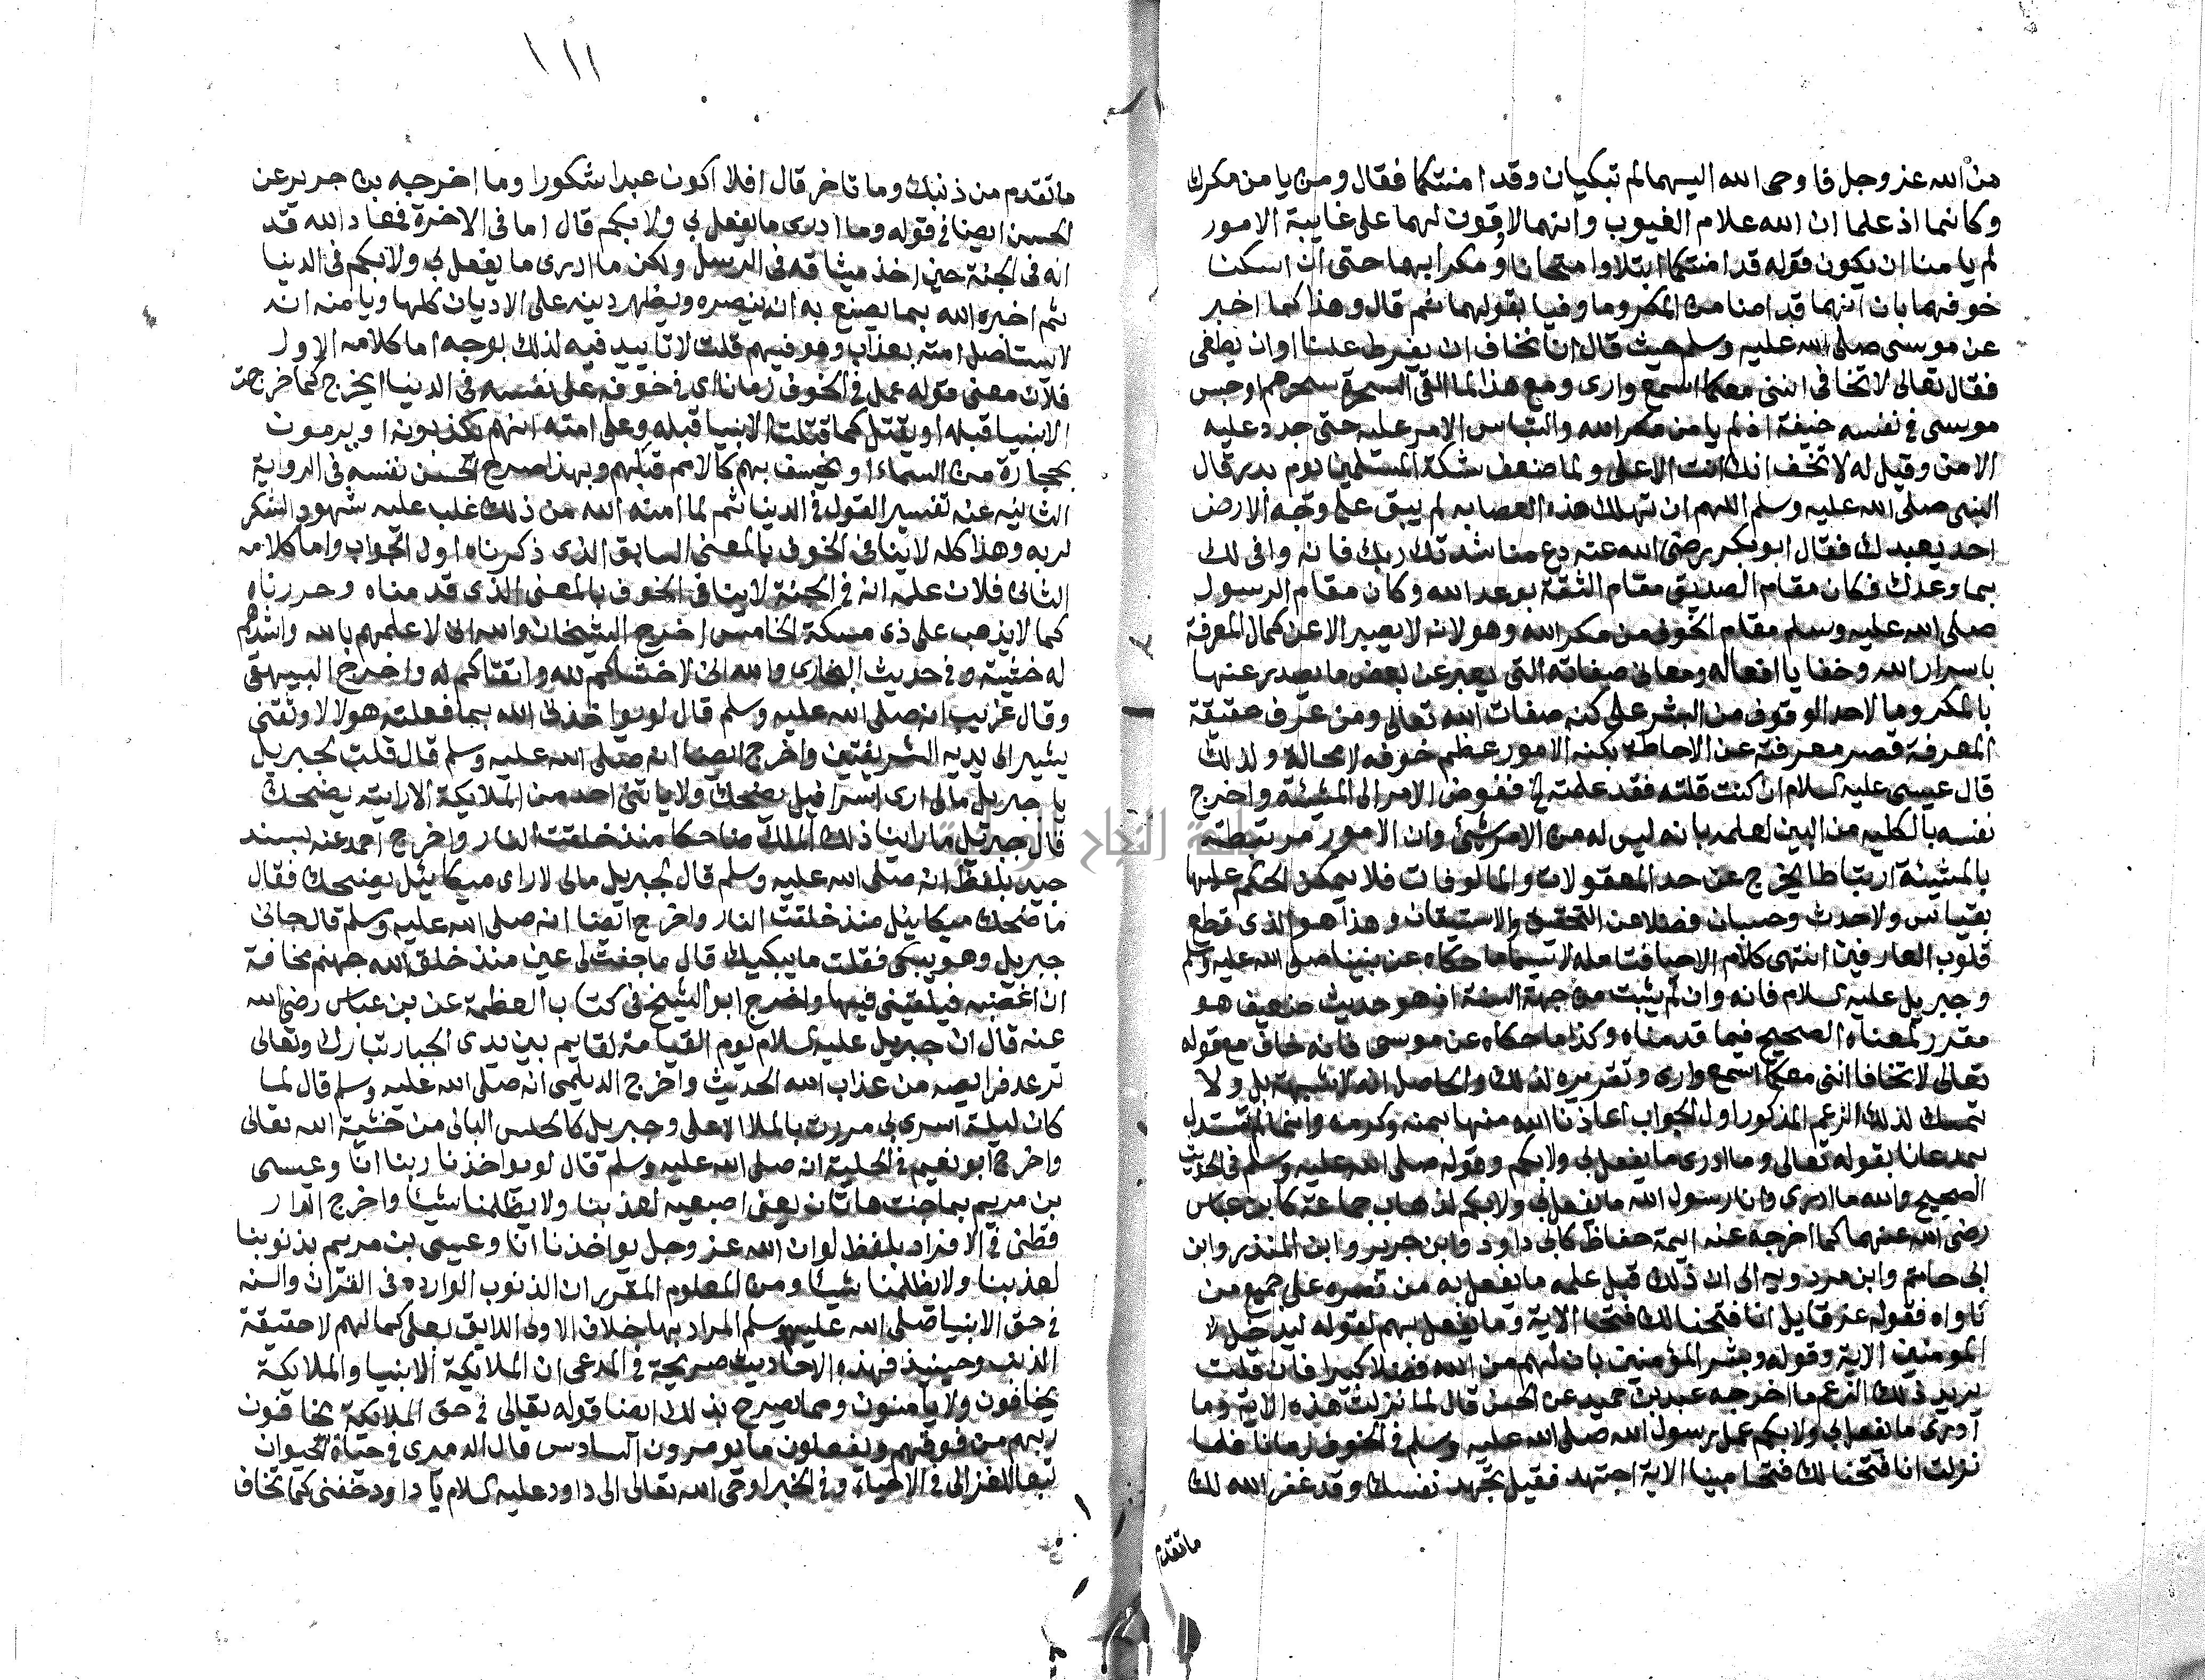 من الله عز وجل فاوحى الله اليهما لم تبكيان وقد امنتكما فقال ومن يامن مكرك
وكانهما اذ علما ان الله علام الغيوب وانهما لا وقوف لهما على غايبة الامور
لم يامنا ان يكون قوله قد امنتكما ابتلا وامتحانا ومكرا بهما حتى ان اسكنا
خوفهما بان انهما قد امنا من المكر وما وفيا بقولهما ثم قال وهذا كما اخبر
عن موسى صلى الله عليه وسلم حيث قال اننا نخاف ان يفرط علينا او ان يطغى
فقال تعالى لا تخافا اننى معكما اسمع وارى ومع هذا لما القى السحرة سحرهم اوجس
موسى فى نفسه خيفة اذ لم يامن مكر الله والتباس الامر عليه حتى جدد عليه
الامن وقيل له لا تخف انك انت الاعلى ولما ضعف شكة المسلمين يوم بدر قال
النبى صلى الله عليه وسلم اللهم ان تهلك هذه العصابه لم يبق على وجه الارض
احد يعبدك فقال ابو بكر رضى الله عنه دع مناشدتك ربك فانه وافى لك
بما وعدك فكان مقام الصديق مقام الثقة بوعد الله وكان مقام الرسول
صلى الله عليه وسلم مقام الخوف من مكر الله وهو لانه لا يصير الا عن كمال المعرفة
باسرار الله وخفايا افعاله ومعانى صفاته التى يعبر عن بعض ما يصدر عنها
بالمكر وما لاحد الوقوف من البشر على كنه صفات الله تعالى ومن عرف حقيقة
المعرفة قصر معرفته عن الاحاطه بكنه الامور عظم خوفه لا محالة ولذلك
قال عيسى عليه السلام ان كنت قلته فقد علمته الخ ففوض الامر الى المشيئة واخرج
نفسه بالكليه من البين لعلمه بانه ليس له من الامر شئ وان الامور مرتبطة
بالمشيئة ارتباطا يخرج عن حد المعقولات والمالوفات فلا يمكن الحكم عليها
بقياس ولا حدث وحسبان فضلا عن التحقيق والاستيقان وهذا هو الذى قطع
قلوب العارفين انتهى كلام الاحيا فتامله لا سيما ما حكاه عن نبينا صلى الله عليه وسلم
وجبريل عليه السلام فانه وان لم يثبت من جهة السنة اذ هو حديث ضعيف هو
مقرر لمعناه الصحيح فيما قدمناه وكذا ما حكاه عن موسى فانه خاف مع قوله
تعالى لا تخافا اننى معكما اسمع وارى وتقريره لذلك والحاصل انه لا شبهة بل ولا
تمسك لذلك الزعم المذكور اول الجواب اعاذنا الله منها بمنه وكرمه وانما لم نستدل
بمدعانا بقوله تعالى وما ادرى ما يفعل بى ولا بكم وقوله صلى الله عليه وسلم فى الحديث
الصحيح والله ما ادرى وانا رسول الله ما يفعل بى ولا بكم لذهاب جماعة كابن عباس
رضى الله عنهما كما اخرجه عنه ايمة حفاظ كابى داود وابن جرير وابن المنذر وابن
ابى حاتم وابن مردويه الى ان ذلك قبل علمه ما يفعل به من نصره على جميع من
ناواه فقوله عز قايل انا فتحنا لك فتحا الاية وما يفعل بهم لقوله ليدخل
المومنين الاية وقوله وبشر المؤمنين بان لهم من الله فضلا كبيرا فان قلت
يريد ذلك الزعم ما اخرجه عبد بن حميد عن الحسن قال لما نزلت هذه الاية وما
ادرى ما يفعل بى ولا بكم عمل رسول الله صلى الله عليه وسلم فى الخوف زمانا فلما
نزلت انا فتحنا لك فتحا مبينا الاية اجتهد فقيل تجهد نفسك وقد غفر الله لك
ما تقدم
١١١
ما تقدم من ذنبك وما تاخر قال افلا اكون عبدا شكورا وما اخرجه بن جرير عن
الحسن ايضا فى قوله وما ادرى ما يفعل بى ولا بكم قال اما فى الاخرة فمعاد الله قد
انه فى الجنة حين اخذ ميثاقه فى الرسل ولكن ما ادرى ما يفعل بى ولا بكم فى الدنيا
ثم اخبره الله بما يصنع به ان ينصره ويظهر دينه على الاديان كلها ويامنه انه
لا يستاصل امته بعذاب وهو فيهم قلت لا تاييد فيه لذلك بوجه اما كلامه الاول
فلان معنى قوله عمل فى الخوف زمانا اى فى خوفه على نفسه فى الدنيا ايخرج كما خرجت
الانبيا قبله او يقتل كما قتلت الانبيا قبله وعلى امته انهم يكذبونه او يرمون
بحجارة من السماء او يخسف بهم كالامم قبلهم وبهذا صرح الحسن نفسه فى الرواية
الثانيه عنه تفسير القوله فى الدنيا ثم لما امنه الله من ذلك غلب عليه شهود الشكر
لربه وهذا كله لا ينافى الخوف بالمعنى السابق الذى ذكرناه اول الجواب واما كلامه
الثانى فلان علمه انه فى الجنة لا ينافى الخوف بالمعنى الذى قدمناه وحررناه
كما لا يذهب على ذى مسكة الخامس اخرج الشيخان والله انى لاعلمهم بالله واشدهم
له خشية وفى حديث البخارى والله انى لاخشاكم لله واتقاكم له واخرج البيهقى
وقال غريب انه صلى الله عليه وسلم قال لو يواخذنى الله بما فعلته هولا لاوثقنى
يشير الى يديه الشريفتين واخرج ايضا انه صلى الله عليه وسلم قال قلت لجبريل
يا جبريل مالى ارى اسرافيل يضحك ولا ياتنى احد من الملايكة الا رايته يضحك
قال جبريل ما راينا ذلك الملك ضاحكا منذ خلقت النار واخرج احمد عنه بسند
جيد بلفظ انه صلى الله عليه وسلم قال لجبريل مالى لا ارى ميكائيل يضحك فقال
ما ضحك ميكائيل منذ خلقت النار واخرج ايضا انه صلى الله عليه وسلم قال جانى
جبريل وهو يبكى فقلت ما يبكيك قال ما جفت لى عين منذ خلق الله جهنم مخافة
ان اغضبه فيلقينى فيها واخرج ابو الشيخ فى كتاب العظمة عن بن عباس رضى الله
عنه قال ان جبريل عليه السلام يوم القيامة لقايم بين يدى الجبار تبارك وتعالى
ترعد فرايصه من عذاب الله الحديث واخرج الديلمى انه صلى الله عليه وسلم قال لما
كان ليلة اسرى بى مررت بالملا الاعلى وجبريل كالحلس البالى من خشية الله تعالى
واخرج ابو نعيم فى الحلية انه صلى الله عليه وسلم قال لو يواخذنا ربنا انا وعيسى
بن مريم بما جنت هاتان يعنى اصبعيه لعذبنا ولا يظلمنا شيئا واخرج الدار
قطنى فى الافراد بلفظ لو ان الله عز وجل يواخذنا انا وعيسى بن مريم بذنوبنا
لعذبنا ولا يظلمنا شيئا ومن المعلوم المقرر ان الذنوب الوارده فى القران والسنه
فى حق الانبيا صلى الله عليهم وسلم المراد بها خلاف الاولى اللايق بعلى كمالهم لا حقيقة
الذنب وحينيذ فهذه الاحاديث صريحة فى المدعى ان الملايكة الانبيا والملايكة
يخافون ولا يامنون ومما يصرح بذلك ايضا قوله تعالى فى حق الملايكة يخافون
ربهم من فوقهم ويفعلون ما يومرون السادس قال الدميرى فى حياة الحيوان
تبعا للغزالى فى الاحياء وفى الخبر اوحى الله تعالى الى داود عليه السلام يا داود خفنى كما تخاف